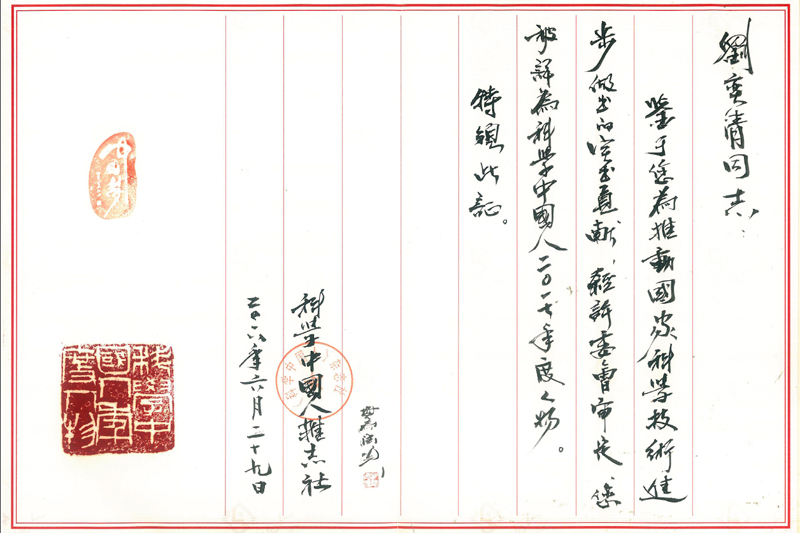 劉奕清同志：
鑒于您為推動國家科學技術進
步做出的突出貢獻，經評委會審定您
被評為科學中國人二〇一七年度人物。
特頒此証。
科學中國人雜志社
二〇一八年六月二十九日
科學中
國人年
度人物